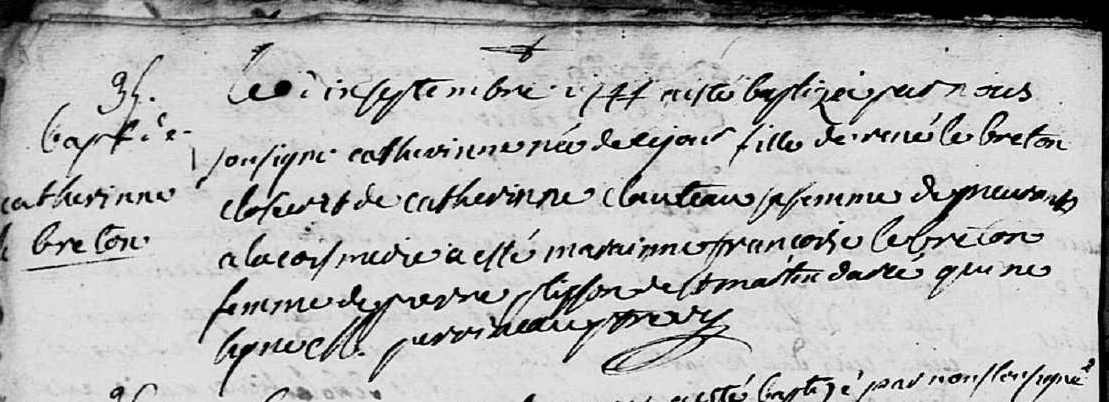 35.
bapt. de
catherinne
le breton
Le 2e septembre 1744 a esté baptizée par nous
sousigné catherinne née de ce jour fille de rené le breton
closier et de catherinne clauteau sa femme demeurants
a la coismerie a esté marainne francoise le breton
femme de pierre plisson de st martin daré qui ne
signe
a esté baptizé par nous sousigné